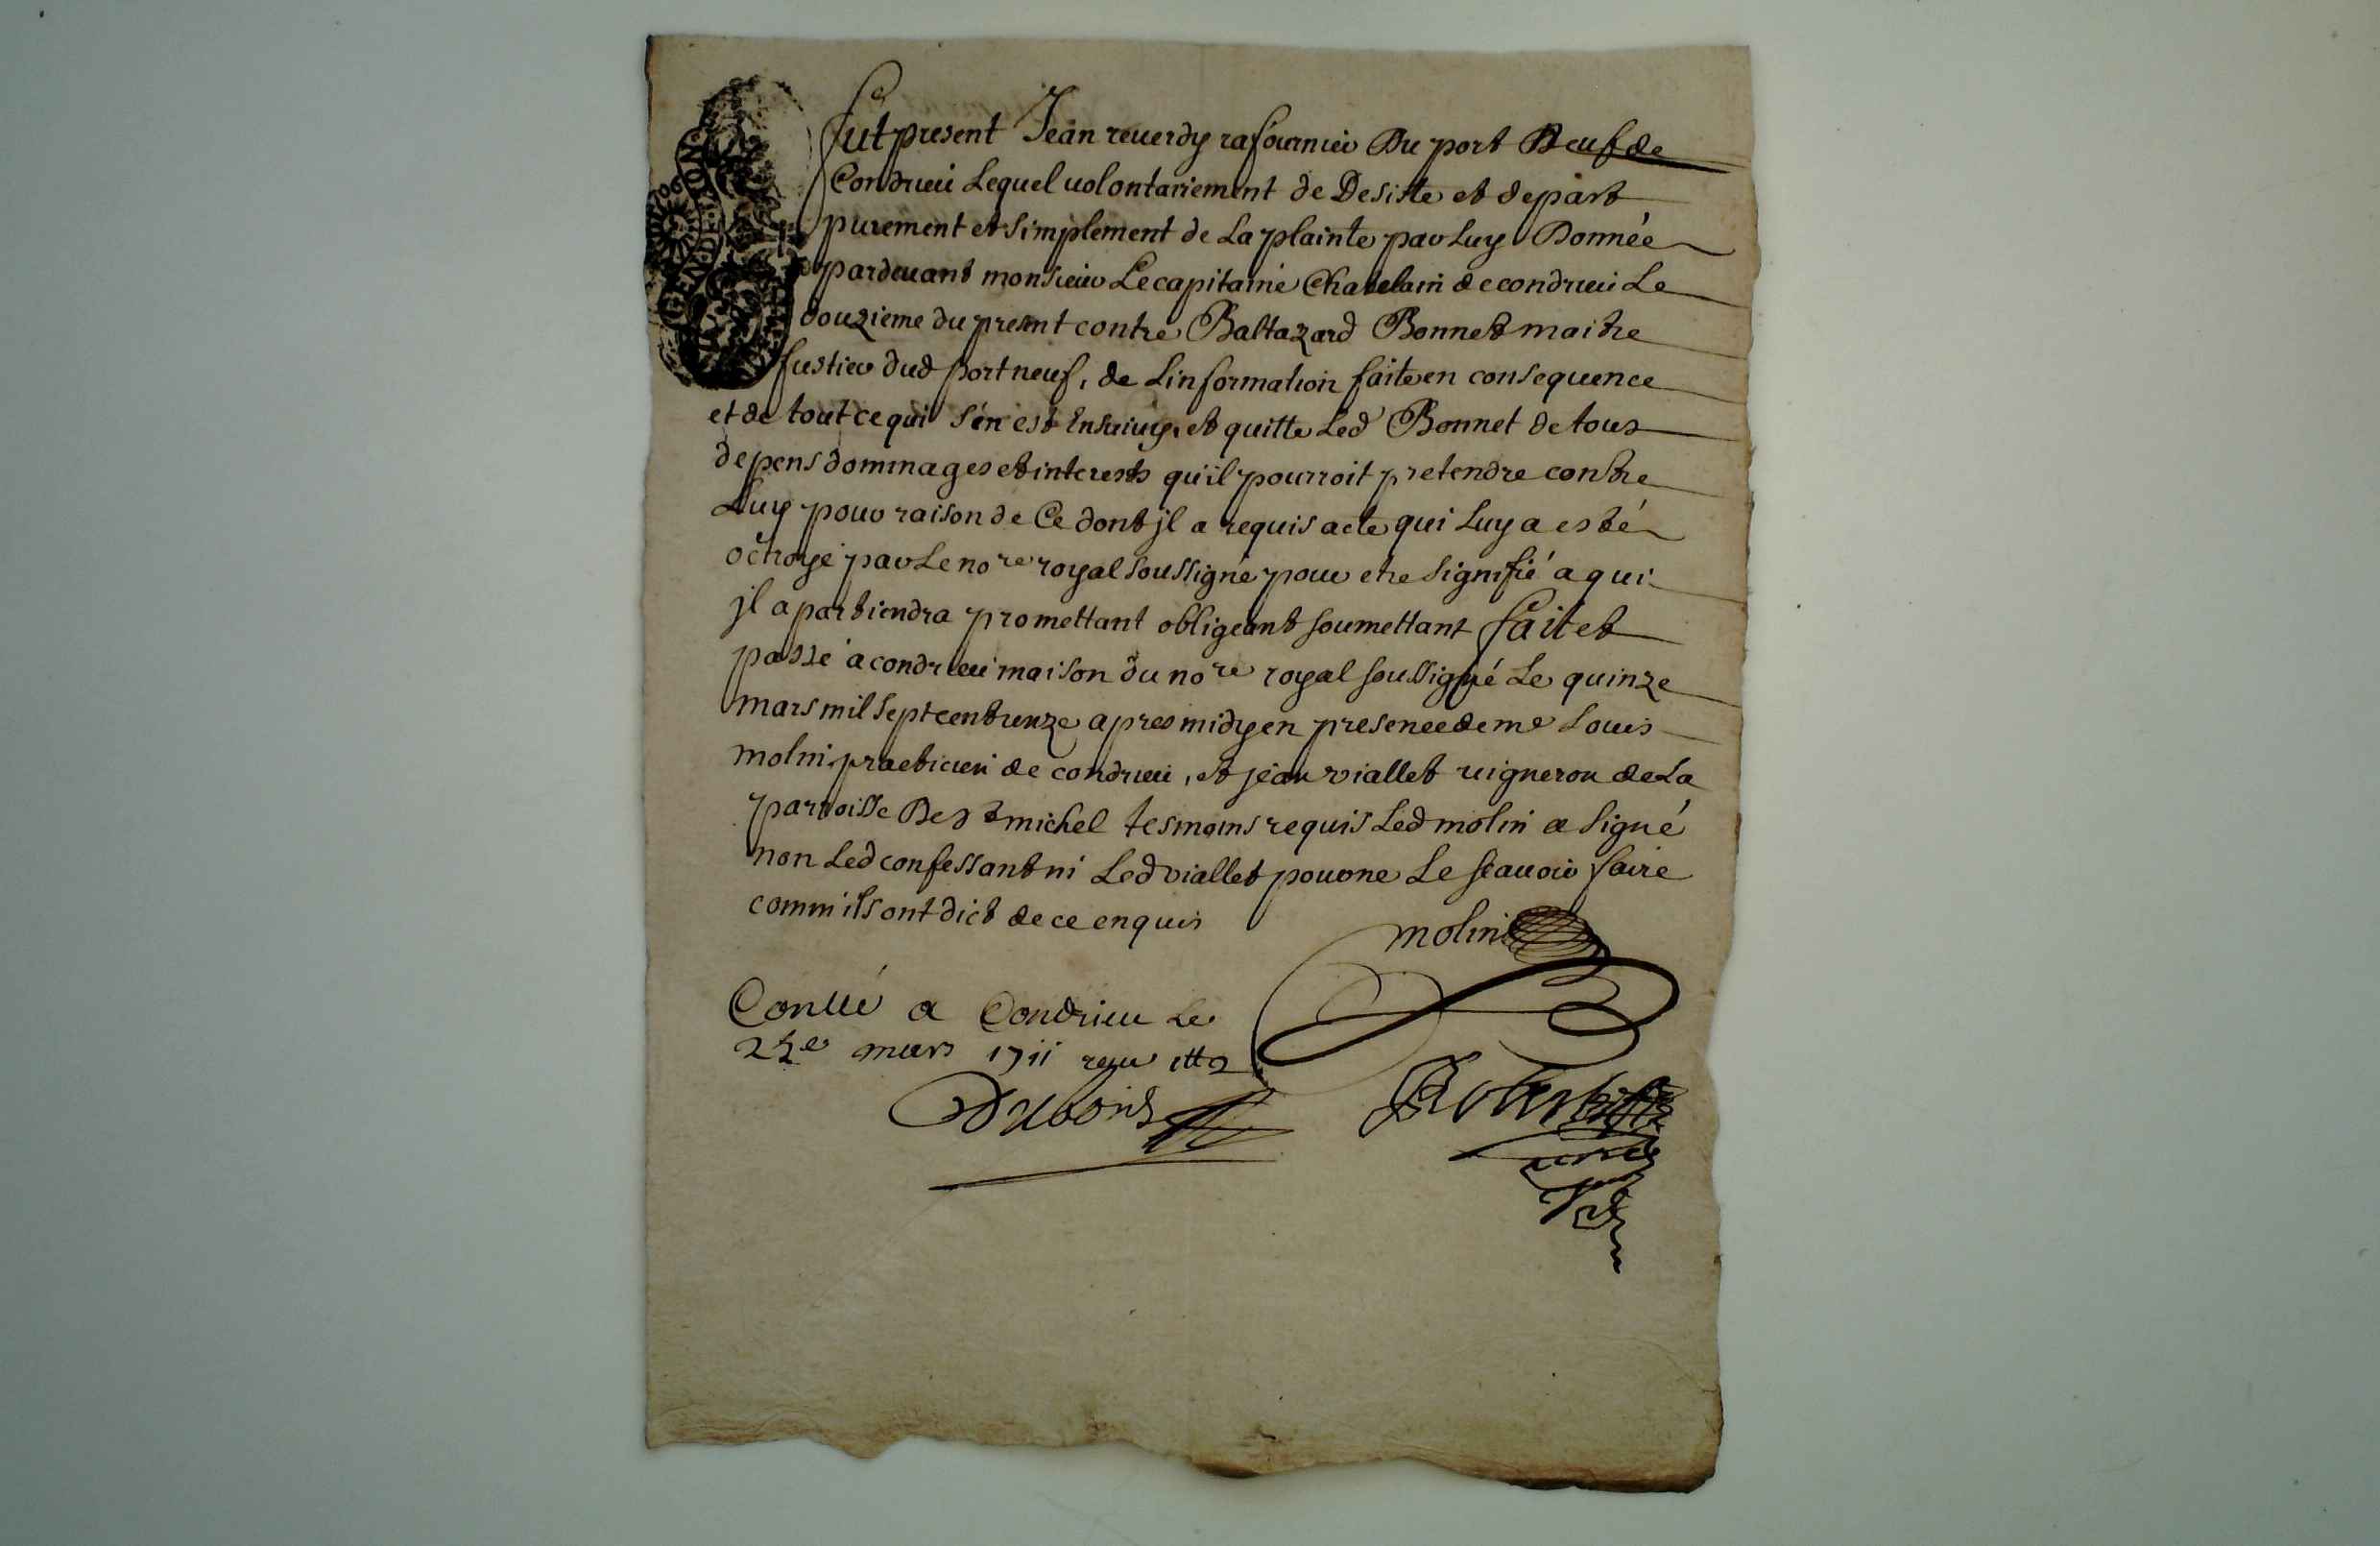 fut present Jean reverdy rafournier Du port Neuf de
Condrieu Lequel volontairement de Desiste et depart
purement et simplement de La plainte par Luy Donnée
pardevant monsieur Le capitaine Chatelain de condrieu Le
douzieme du present contre Baltazard Bonnet maitre
fustier dud port neuf, de L'information faite en consequence
et de tout ce qui s'en est Ensuivy, et quitte Led Bonnet de tous
depens dommages et interests qu'il pourroit pretendre contre
Luy pour raison de Ce dont jl a requis acte qui Luy a esté
octroyé par Le nore royal soussigné pour etre signifié a qui
jl apartiendra promettant obligeant soumettant fait et
passé a condrieu maison du nore royal soussigné Le quinze
mars mil sept cent unze apres midy en presence de me Louis
molin praticien de condrieu, et jean viallet vigneron de La
parroisse De st michel tesmoins requis Led molin a signé
non Led confessant ni Led viallet pour ne Le scavoir faire
comm ils ont dict de ce enquis
molin
Conllé a Condrieu Le
mars 1711 reçu
Dubois